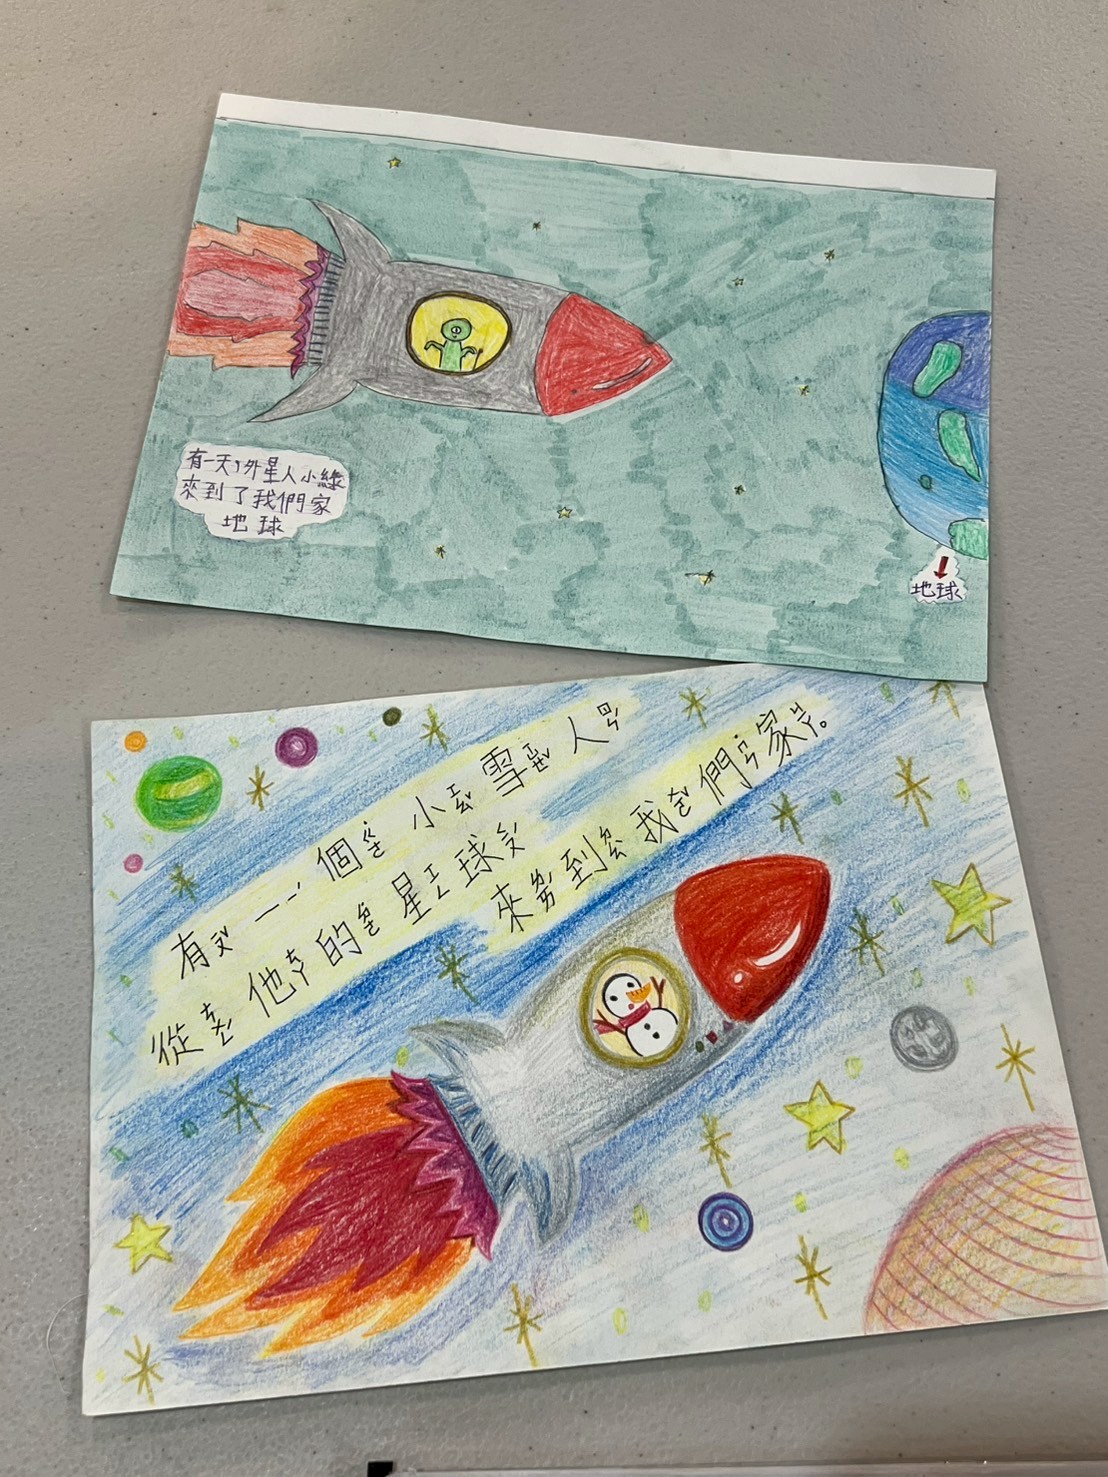 有一天,外星人小綠
來到了我們家
地球
地球
有ㄧㄡˇ一ㄧˊ個ㄍㄜˋ小ㄒㄧㄠˇ雪ㄒㄩㄝˇ人ㄖㄣˊ
從ㄘㄨㄥˊ他ㄊㄚ的ㄉㄜ˙星ㄒㄧㄥ球ㄑㄧㄡˊ來ㄌㄞˊ到ㄉㄠˋ我ㄨㄛˇ們ㄇㄣ˙家ㄐㄧㄚ。